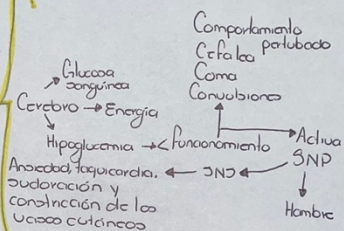 Comportamiento
perturbado
Cefalea
Coma
Convulsiones
Glucosa
sanguínea
Cerebro → Energía
Hipoglucemia → < funcionamiento → Activa
SNP
Hambre
SNC
Ansiedad, taquicardia,
sudoración y
constricción de los
vasos cutáneos